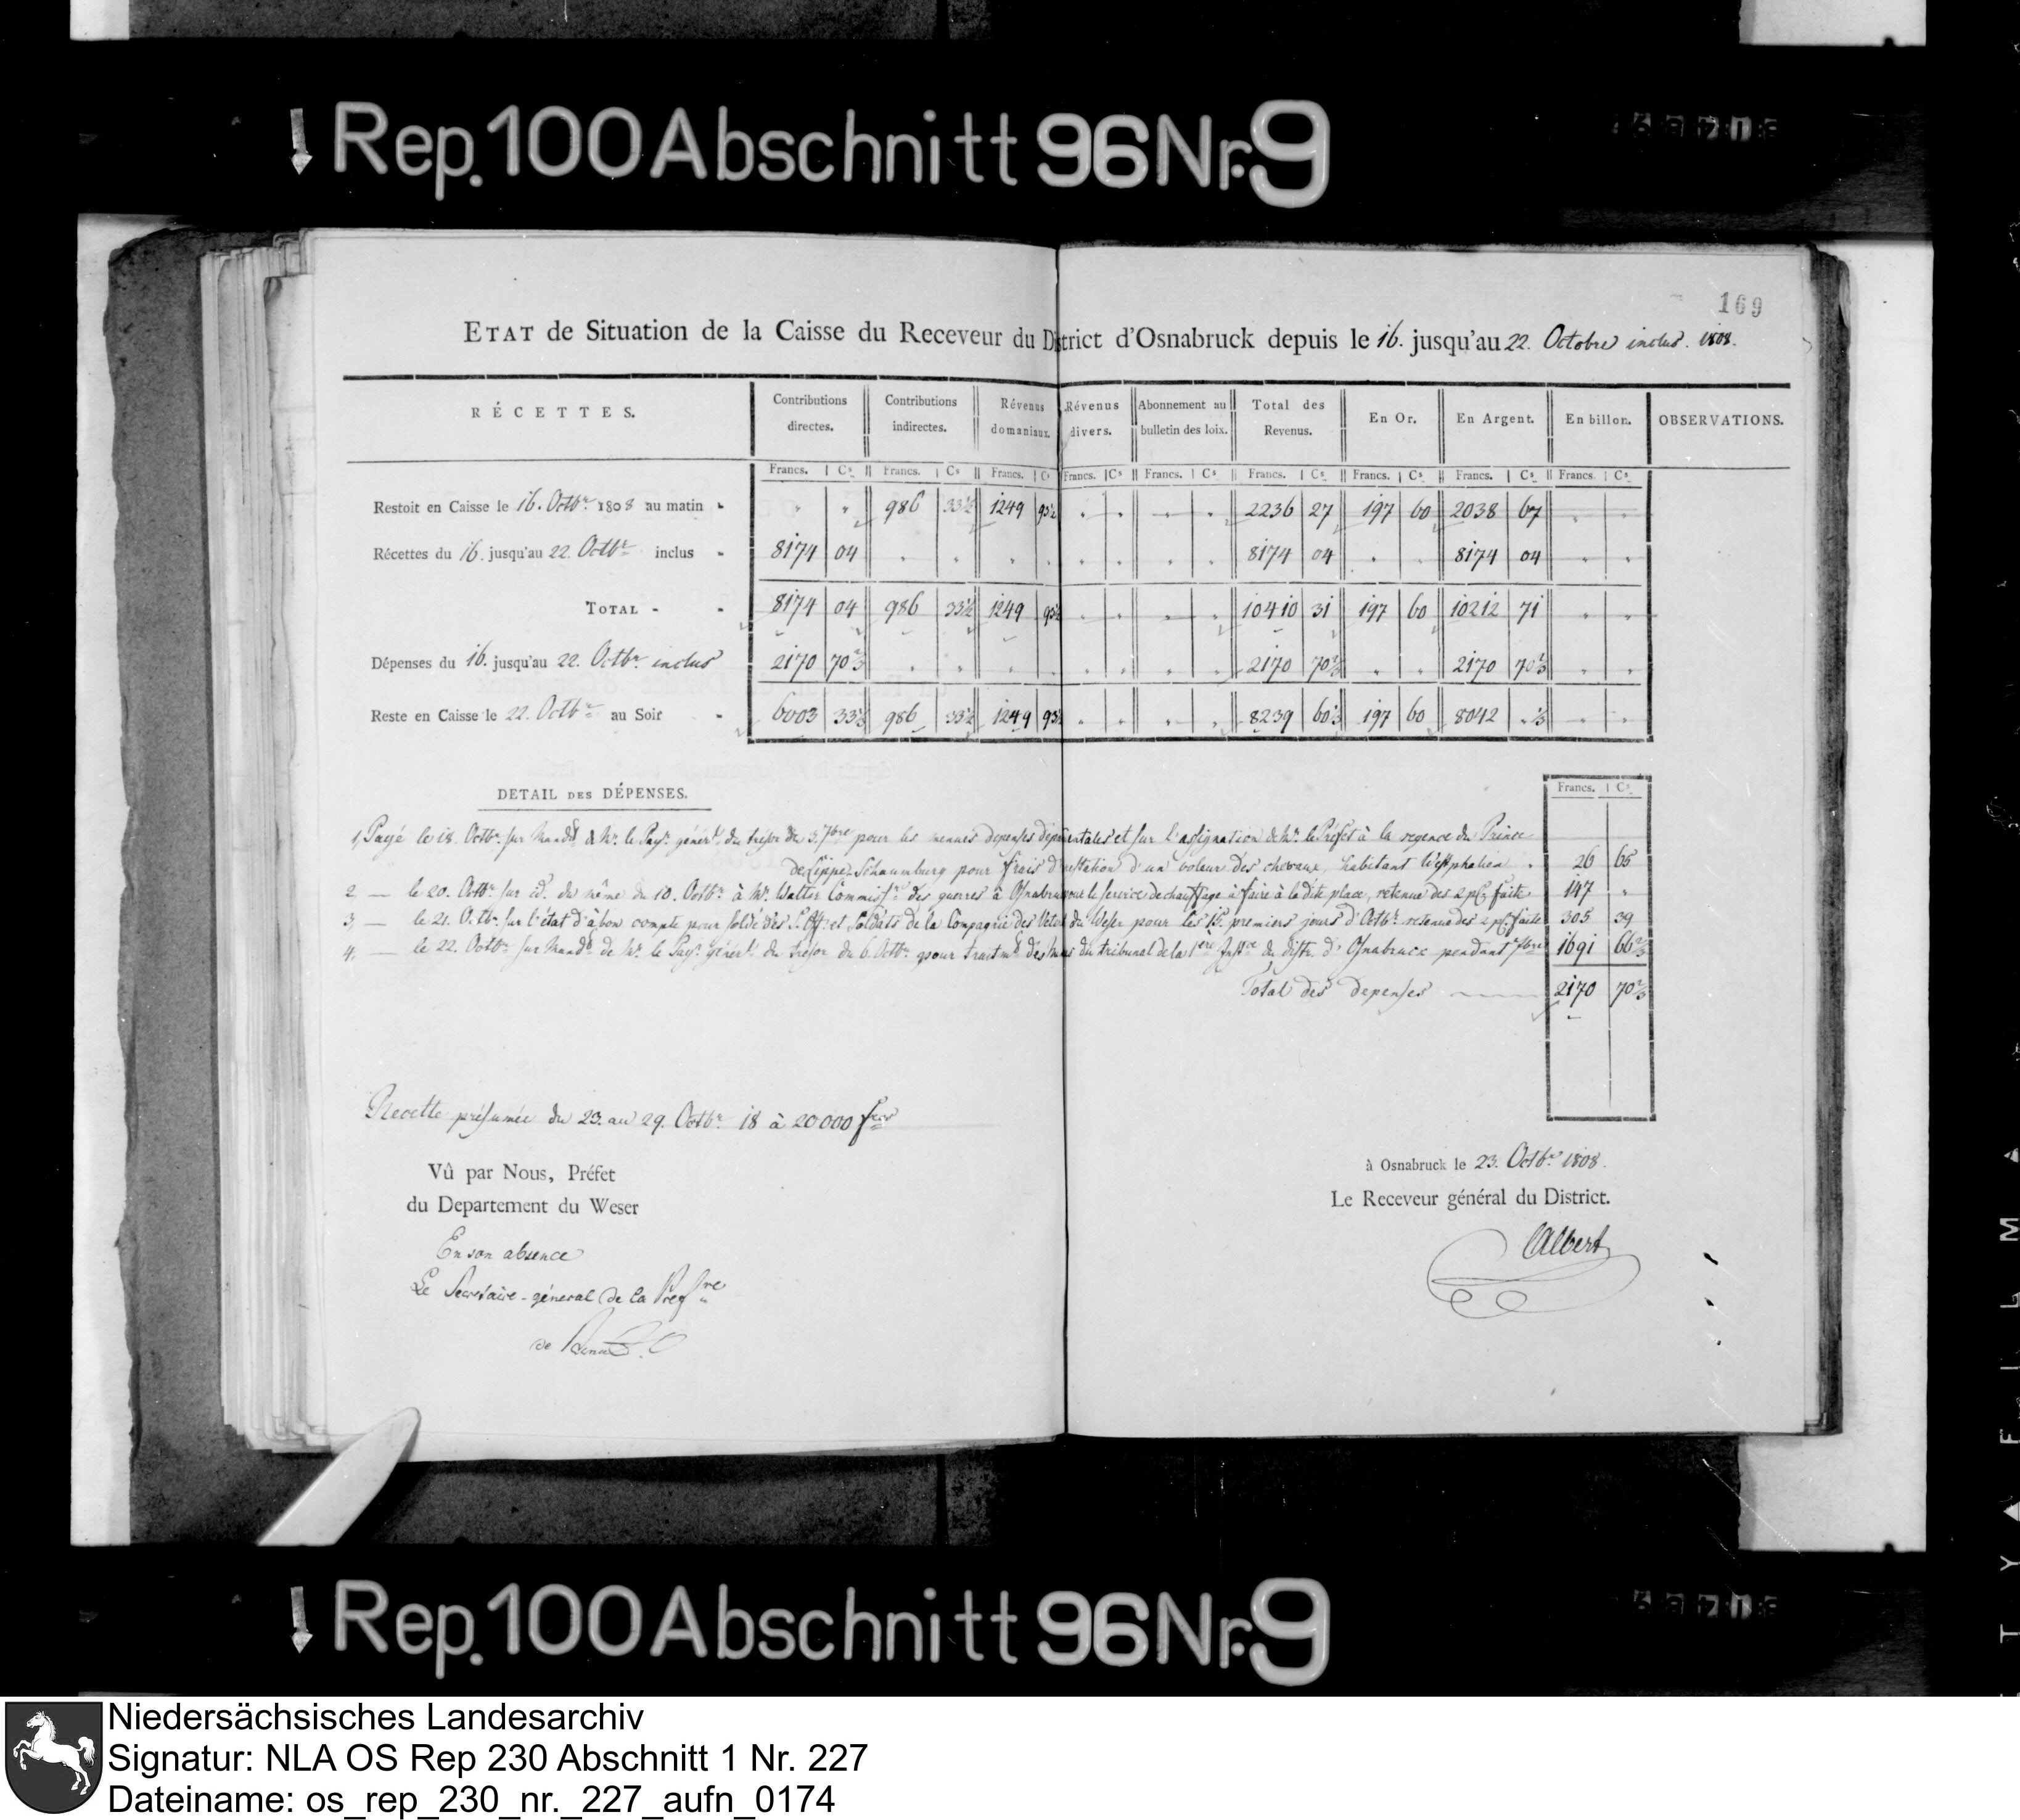 Rep. 100 Abschnitt 96 Nr. 9
169
ETAT de Situation de la Caisse du Receveur du District d'Osnabruck depuis le 16. jusqu'au 22. Octobre inclus. 1808.
RÉCETTES. Contributions directes. Contributions indirectes. Révenus domaniaux. Révenus divers. Abonnement au bulletin des loix. Total des Revenus. En Or. En Argent. En billon. OBSERVATIONS.
Francs. Cs. Francs. Cs Francs. Cs Francs. Cs Francs. Cs Francs. Cs. Francs. Cs. Francs. Cs. Francs. Cs.
Restoit en Caisse le 16. Octbr. 1808 au matin - " " 986 33½ 1249 93½ " " " " 2236 27 197 60 2038 67 " "
Récettes du 16. jusqu'au 22. Octbr. inclus - 8174 04 " " " " " " " " 8174 04 " " 8174 04 " "
TOTAL - - 8174 04 986 33½ 1249 93½ " " " " 10410 31 197 60 10212 71 " "
Dépenses du 16. jusqu'au 22. Octbr. inclus 2170 70⅔ " " " " " " " " 2170 70⅔ " " 2170 70⅔ " "
Reste en Caisse le 22. Octbr. au Soir - 6003 33⅓ 986 33½ 1249 93½ " " " " 8239 60⅓ 197 60 8042 "⅓ " "
DETAIL DES DÉPENSES. Francs. Cs.
1, Payé le 18. Octbr. sur Mandt. de Mr. le Pay. génér. du trésor du 3. 7bre pour les menues depenses departementales et sur l'assignation de Mr. le Préfet à la regence du Prince
de Lippe-Schaumburg pour frais d'arrestation d'un voleur des chevaux, habitant Westphalien. 26 65
2, — le 20. Octbr. sur id. du même du 10. Octbr. à Mr. Walter Commissre. des guerres à Osnabruc pour le service de chauffage à faire à la dite place, retenue des 2 pCt. faite 147 "
3, — le 21. Octbr. sur l'état d'àbon compte pour solde des S. Off. et Soldats de la Compagnie des Vetes. du Weser pour les 15. premiers jours d'Octbr. retenue des 2 pCt. faite 305 39
4, — le 22. Octbr. sur Mandt. de Mr. le Pay. génér. du trésor du 6. Octbr. pour traitmt. des du tribunal de la 1ère Instce du distr. d'Osnabruck pendant 7bre 1691 66⅔
Total des depenses 2170 70⅔
Recette présumée du 23. au 29. Octbr. 18 à 20000 frcs
Vû par Nous, Préfet
du Departement du Weser
En son absence
Le Secretaire-géneral de la Préfre
de
à Osnabruck le 23. Octbr. 1808.
Le Receveur général du District.
Albert
Rep. 100 Abschnitt 96 Nr. 9
Niedersächsisches Landesarchiv
Signatur: NLA OS Rep 230 Abschnitt 1 Nr. 227
Dateiname: os_rep_230_nr._227_aufn_0174